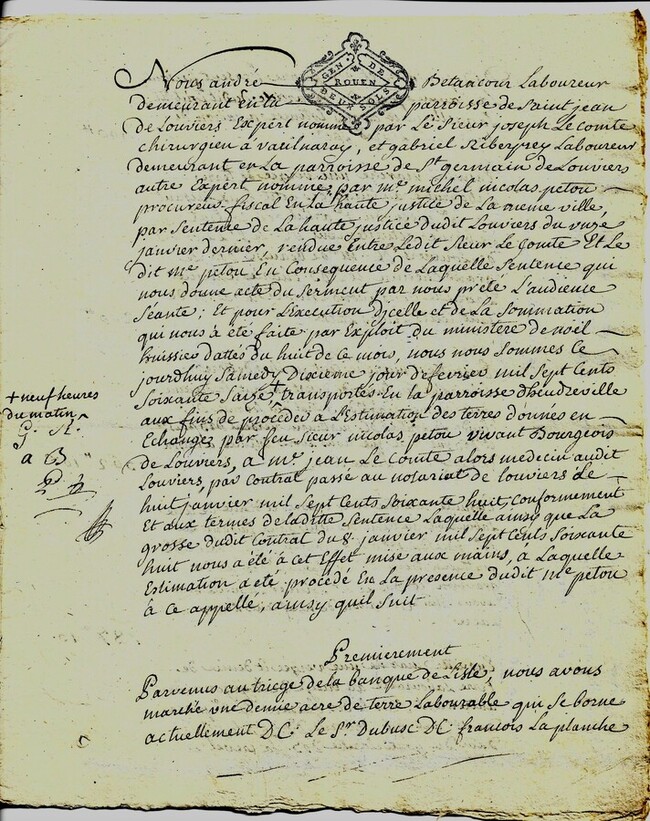 GEN. DE
ROUEN
DEUX SOLS
Nous andré Betancour Laboureur
demeurant en la parroisse de Saint jean
de Louviers Expert nommé par Le Sieur joseph Le comte
chirurgien à vatilnaray, et gabriel Laboureur
demeurant en La parroisse de St. germain de Louviers
autre Expert nommé par me. michel nicolas petou
procureur fiscal En La haute justice de La meme ville,
par Sentence de La haute justice dudit Louviers du
janvier dernier, rendue Entre Ledit Sieur Le Comte Et Le
dit me. petou En Consequence de Laquelle Sentence qui
nous donne acte du Serment par nous prété L'audience
Séante; Et pour L'Execution Dicelle et de La Sommation
qui nous à été faite par Exploit du ministere de noël
huissier dattés du huit de ce mois, nous nous Sommes Ce
jourdhuy Samedy Dixieme jour de fevrier mil Sept Cents
Soixante Saise + transportés En La parroisse d'heudreville
+ neuf heures
du matin
aux fins de procéder à L'Estimation des terres données en
Echange par feu Sieur nicolas petou vivant Bourgeois
de Louviers, à me. jean Le Comte alors medecin audit
Louviers, par Contrat passé au notariat de louviers Le
huit janvier mil Sept Cents Soixante huit, Conformement
Et aux termes de laditte Sentence Laquelle ainsy que La
grosse dudit Contrat du 8. janvier mil Sept Cents Soixante
huit nous a été à cet Effet mise aux mains, à Laquelle
Estimation a été procédé En La presence dudit me. petou
à ce appellé, ainsy quil Suit
Premierement
Parvenus au triege de la banque de Lisle, nous avons
marché une demie acre de terre Labourable qui se borne
actuellement D.C. Le Sr. Dubusc D.C. francois La planche